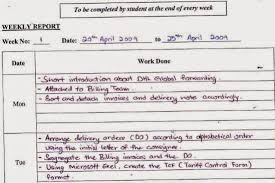 To be completed by student at the end of every week
WEEKLY REPORT
Week No: 1 Date: 20th April 2009 to 25th April 2009
Date Work Done
- Short introduction about DHL Global forwarding.
- Attached to Billing Team
Mon - Sort and detach invoices and delivery note accordingly.
- Arrange delivery orders (DO) according to alphabetical order
using the initial letter of the consignee.
Tue - Segregate the Billing invoice and the DO.
- Using Microsoft Excel, create the TCF (Tariff Control Form)
format.